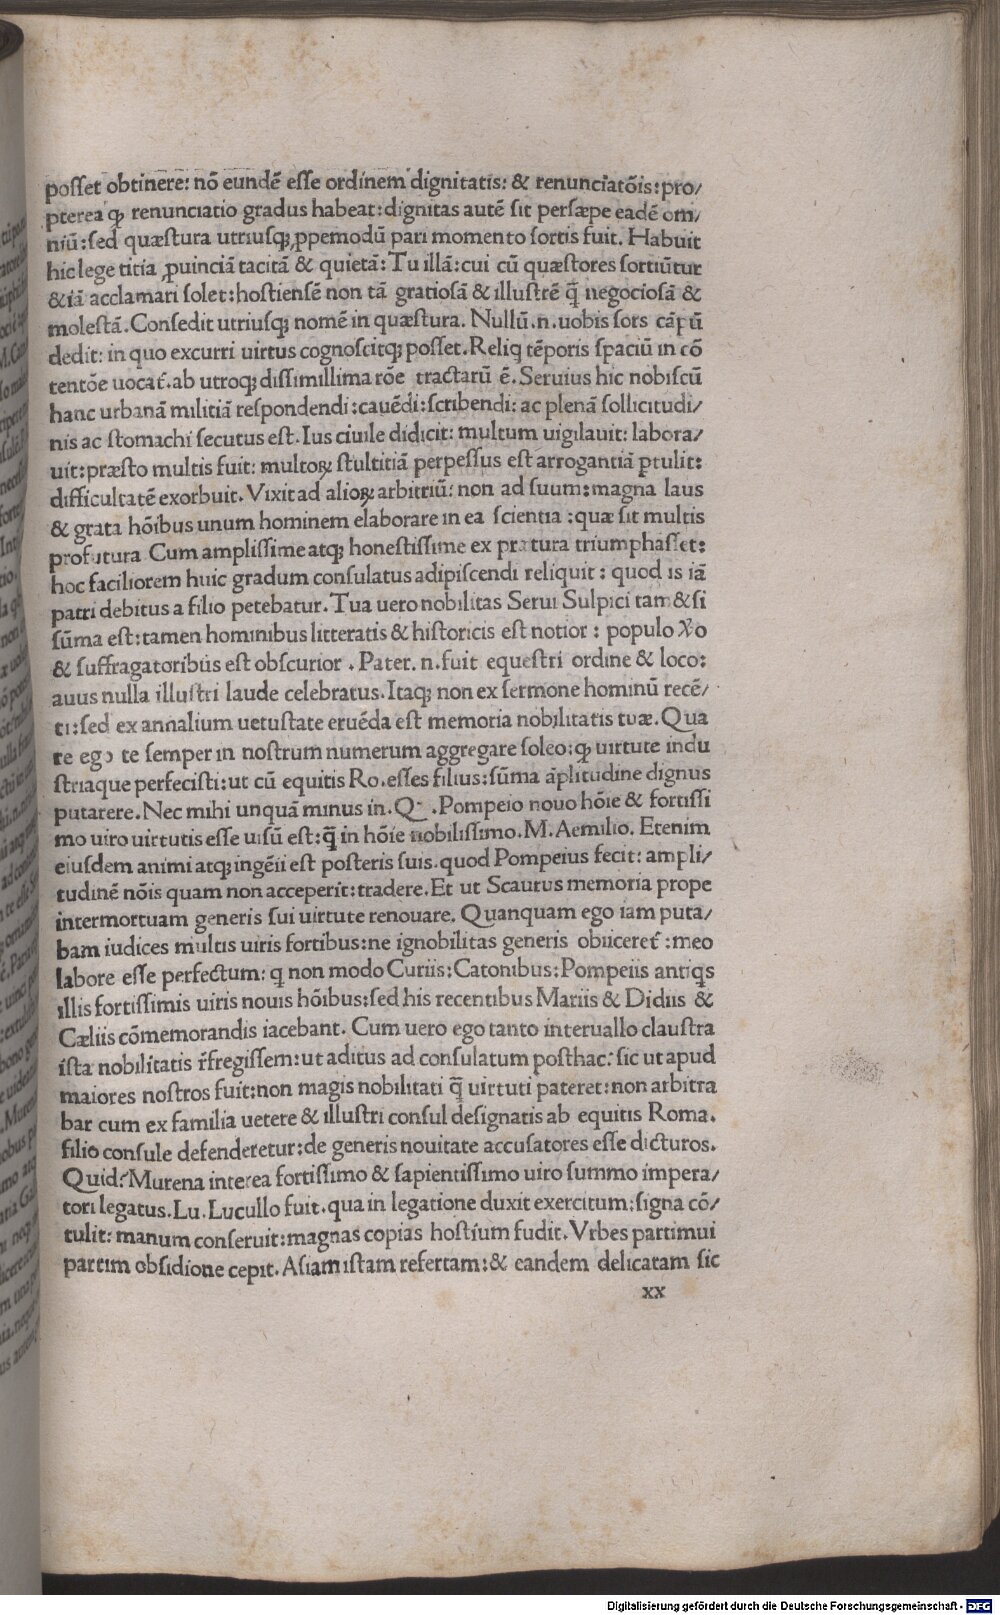 posſet obtinere: nõ eundẽ eſſe ordinem dignitatis: & renunciatõis: pro/
pterea ꝙ renunciatio gradus habeat: dignitas autẽ ſit perſæpe eadẽ om/
niũ: ſed quæſtura utriuſqꝫ ꝓpemodũ pari momento ſortis fuit. Habuit
hic lege titia ꝓuinciã tacitã & quietã: Tu illã: cui cũ quæſtores ſortiũtur
& iã acclamari ſolet: hoſtienſẽ non tã gratioſã & illuſtrẽ q̃ negocioſã &
moleſtã. Conſedit utriuſqꝫ nomẽ in quæſtura. Nullũ .n. uobis ſors cãpũ
dedit: in quo excurri uirtus cognoſcitqꝫ poſſet. Reliq tẽporis ſpaciũ in cõ
tentõe uocat̃. ab utroqꝫ diſſimillima rõe tractarũ ẽ. Seruius hic nobiſcũ
hanc urbanã militiã reſpondendi: cauẽdi: ſcribendi: ac plenã ſollicitudi/
nis ac ſtomachi ſecutus eſt. Ius ciuile didicit: multum uigilauit: labora/
uit: præſto multis fuit: multoꝝ ſtultitiã perpeſſus eſt arrogantiã ꝑtulit:
difficultatẽ exorbuit. Vixit ad alioꝝ arbitriũ: non ad ſuum: magna laus
& grata hõibus unum hominem elaborare in ea ſcientia: quæ ſit multis
profutura Cum ampliſſime atqꝫ honeſtiſſime ex prætura triumphaſſet:
hoc faciliorem huic gradum conſulatus adipiſcendi reliquit: quod is iã
patri debitus a filio petebatur. Tua uero nobilitas Serui Sulpici tam & ſi
ſũma eſt: tamen hominibus litteratis & hiſtoricis eſt notior: populo ꝟo
& ſuffragatoribus eſt obſcurior. Pater .n. fuit equeſtri ordine & loco:
auus nulla illuſtri laude celebratus. Itaqꝫ non ex ſermone hominũ recẽ/
ti: ſed ex annalium uetuſtate eruẽda eſt memoria nobilitatis tuæ. Qua
re ego te ſemper in noſtrum numerum aggregare ſoleo: ꝙ uirtute indu
ſtriaque perfeciſti: ut cũ equitis Ro. eſſes filius: ſũma ãplitudine dignus
putarere. Nec mihi unquã minus in. Q. Pompeio nouo hõie & fortiſſi
mo uiro uirtutis eſſe uiſũ eſt: q̃ in hõie nobiliſſimo. M. Aemilio. Etenim
eiuſdem animi atqꝫ ingẽii eſt poſteris ſuis. quod Pompeius fecit: ampli/
tudinẽ nõis quam non acceperit: tradere. Et ut Scaurus memoria prope
intermortuam generis ſui uirtute renouare. Quanquam ego iam puta/
bam iudices multis uiris fortibus: ne ignobilitas generis obiiceret̃: meo
labore eſſe perfectum: q non modo Curiis: Catonibus: Pompeiis antiqs
illis fortiſſimis uiris nouis hõibus: ſed his recentibus Mariis & Didiis &
Cæliis cõmemorandis iacebant. Cum uero ego tanto interuallo clauſtra
iſta nobilitatis r̃fregiſſem: ut aditus ad conſulatum poſthac: ſic ut apud
maiores noſtros fuit: non magis nobilitati q̃ uirtuti pateret: non arbitra
bar cum ex familia uetere & illuſtri conſul deſignatis ab equitis Roma.
filio conſule defenderetur: de generis nouitate accuſatores eſſe dicturos.
Quid? Murena interea fortiſſimo & ſapientiſſimo uiro ſummo impera/
tori legatus. Lu. Lucullo fuit. qua in legatione duxit exercitum: ſigna cõ/
tulit: manum conſeruit: magnas copias hoſtium fudit. Vrbes partimui
partim obſidione cepit. Aſiam iſtam refertam: & eandem delicatam ſic
xx
Digitalisierung gefördert durch die Deutsche Forschungsgemeinschaft - DFG